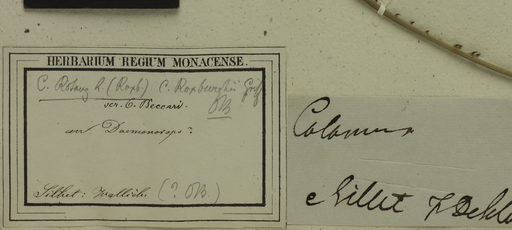 HERBARIUM REGIUM MONACENSE.
C. Rotang L. (Roxb) C. Roxburghii Griff
ver. O. Beccari. OB
an Daemonorops?
Silhet: Wallich (? OB.)
Calamus
e Sillet